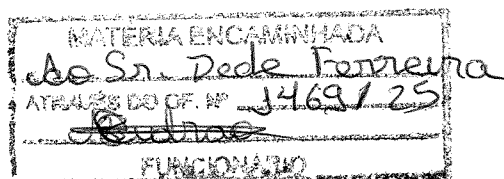 MATERIA ENCAMINHADA
Ao Sr. Dede Ferreira
ATRAVÉS DO OF. Nº 1469/25
FUNCIONARIO